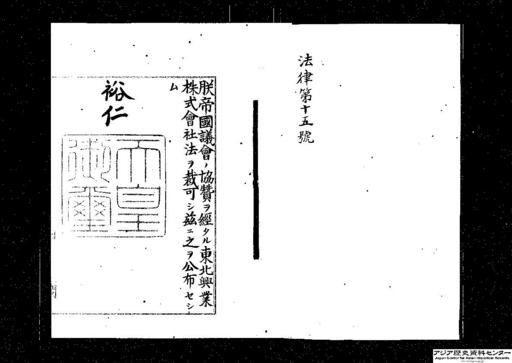 法律第十五號
朕帝國議會ノ協贊ヲ經タル東北興業
株式會社法ヲ裁可シ茲ニ之ヲ公布セシ
ム
裕仁
天皇
御璽
アジア歴史資料センター
Japan Center for Asian Historical Records